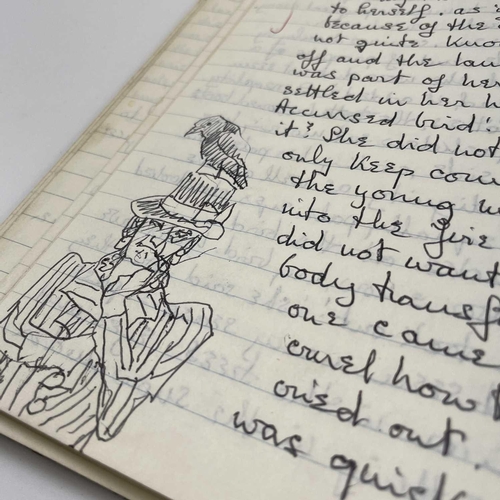 to herself. as
because of the
not quite. Kno
off and the lau
was part of her
settled in her h
Accursed bird!
it? She did not
only keep coun
the young w
into the fire
did not want
body transf
one came
cruel how
cried out.
was quick